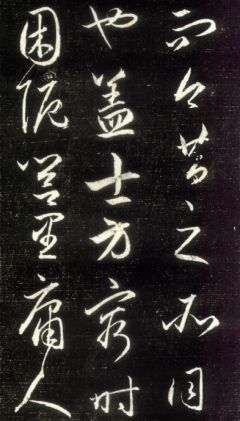 而今昔之所同
也盖士方窮時
困阨閭里庸人